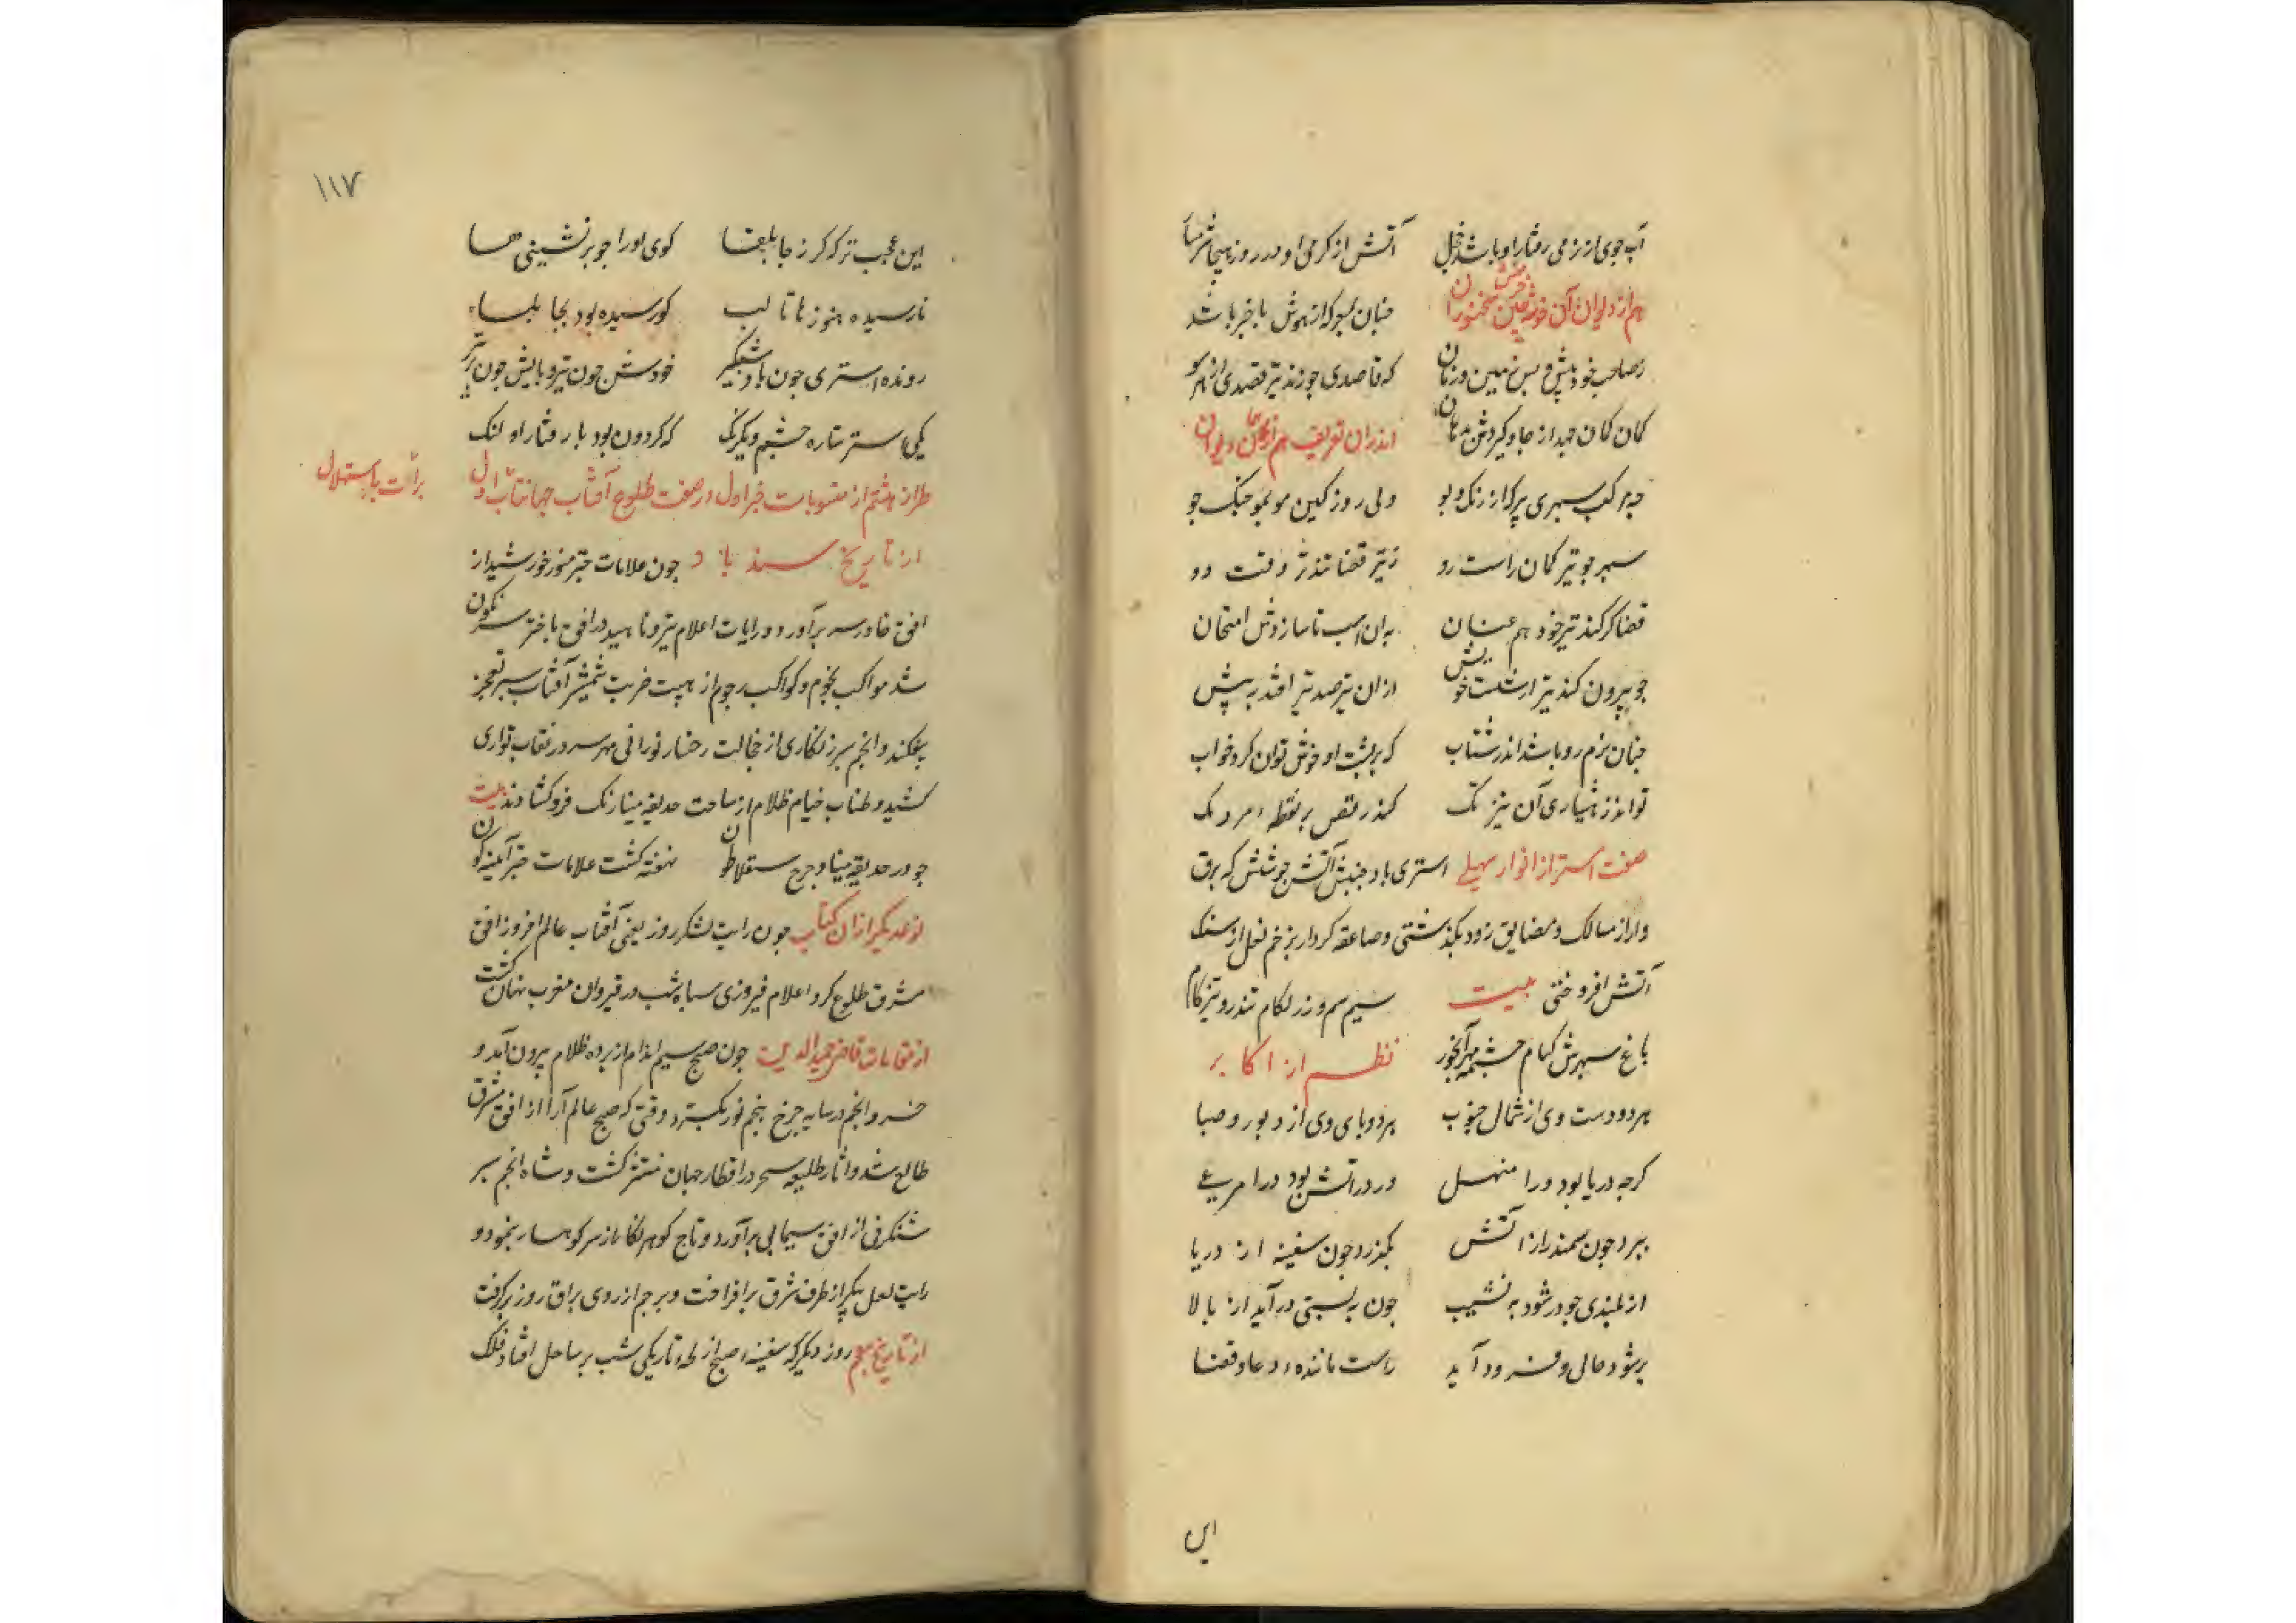 آب جوی از نرمی رفتار او باشد خجل آتش از کرمی او در روز هیجا شرمسار
هم از دیوان آن خوشه چین خرمن سخنوران چنان بسوکه از هوش باخبر باشد
ز صاحب خود پیش و پس زمین و زمان که قاصدی چو زند تیر قصدی از هر سو
کمان کمان جهد از جا و کیردش بدهان اندران تعریف هم از همان دیوان
چه مرکب سپهری پر از رنک و بو ولی روز کین مو بمو جنک جو
سپر جو تیر کمان راست رو ز تیر قضا تندتر وقت دو
قضا کر کند تیر خود هم عنان به ان اسب تا سازدش امتحان
جو بیرون کند تیر از شست خویش ازان تیر صد تیر افتد به پیش
چنان نرم رو باشد اندر شتاب که بر پشت او خوش توان کرد خواب
تواند ز هشیاری آن تیز تک کند رقص بر نقطه مردمک
صفت استر از انوار سهیلی استری باد جنبش آتش جوشش که برق
وار از مسالک و مضایق زود بکذشتی و صاعقه کردار بزخم نعل از سنک
آتش افروختی بیت سیم سم و زر لکام تندرو و تیزکام
باغ سپهرش کنام چشمه مهر آبخور نظم از اکابر
هر دو دست وی از شمال جنوب هر دو پای وی از دبور و صبا
کرچه دریا بود ورا منهل ور در آتش بود ورا مربع
ببرد جون سمندر از آتش بکذرد جون سفینه از دریا
از بلندی جو در شود به نشیب جون به پستی در آید از بالا
بر شود حالی و فرود آید راست مانند دعا و قضا
این
۱۱۷
این عجب تر که کر ز جابلقا کوی او را جو بر نشینی هسا
نارسیده هنوز ها تا لب کو رسیده بود بجابلسا
رونده استری جون باد شبکیر خودش جون تیر و پایش جون پر تیر
یکی استر ستاره چشم و یکرنک که کردون بود با رفتار او لنک
طراز هشتم از منسوبات خبر اول در صفت طلوع آفتاب جهانتاب اول
برأت باستهلال
از تاریخ سندباد جون علامات چتر منور خورشید از
افق خاور سر برآورد و رایات اعلام تیر و ناهید در افق باختر سرنکون
شد مواکب نجوم و کواکب رجوم از هیبت ضربت شمشیر آفتاب سپر تعجز
بیفکند و انجم سبز زنکاری از خجالت رخسار نورانی مهر سر در نقاب تواری
کشید و طناب خیام ظلام از ساحت حدیقه مینا رنک فرو کشادند بیت
جو در حدیقه مینا و چرخ سقلاطون نهفته کشت علامات چتر آینه کون
نوعدیکر ازان کتاب جون رایت لشکر روز یعنی آفتاب عالم افروز از افق
مشرق طلوع کرد اعلام فیروزی سپاه شب در قیروان مغرب نهان کشت
از مقامات قاضی حمید الدین جون صبح سیم اندام از پرده ظلام بیرون آمد و
خسرو انجم در سایه چرخ پنجم نور بکسترد وقتی که صبح عالم آرا از افق مشرق
طالع شد و آثار طلیعه سحر در اقطار جهان منتشر کشت و شاه انجم سر
شنکرفی از افق سیمابی برآورد و تاج کوهر نکار از سر کوهسار بنمود و
رایت لعل پیکر از طرف شرق برافراخت و برجم از روی براق روز برکرفت
از تاریخ معجم روز دیکر که سفینه صبح از لجه تاریکی شب بر ساحل افتاد فلک